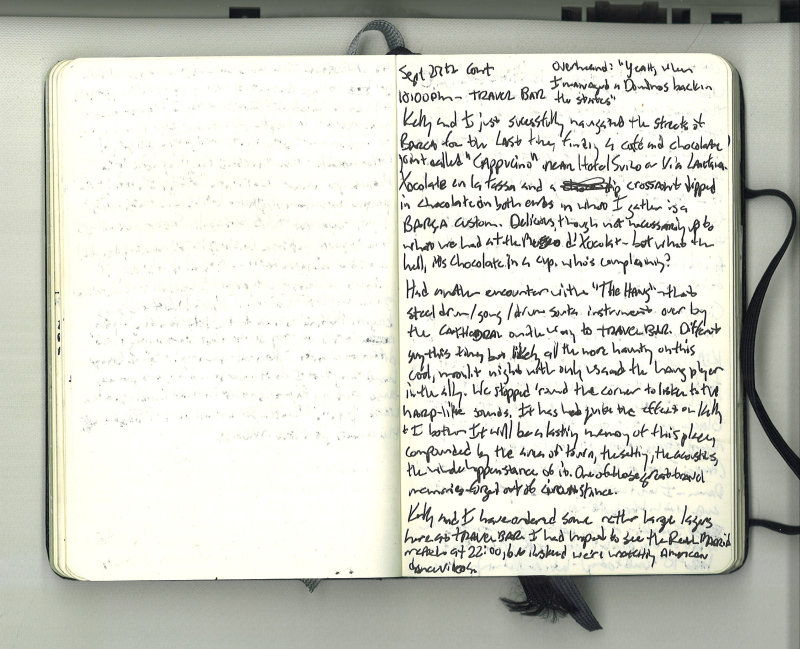 Sept 27th cont
Overheard: "Yeah, when
I managed a Dominos back in
the states"
10:00pm - TRAVEL BAR
Kelly and I just sucessfully navigated the streets of
BARÇA for the last time, finding a café and chocolate
joint called "Cappucino" near Hotel Suizo on Via Laietana.
Xocolate en la tassa and a croissant dipped
in chocolate on both ends in what I gather is a
BARÇA custom. Delicious, though not necessarily up to
what we had at the Museo d' Xocolat - but what the
hell, it's chocolate in a cup. who's complaining?
Had another encounter with "The Hang" - that
steel drum/gong/drum sorta instrument over by
the CATHEDRAL on the way to TRAVEL BAR. Different
guy this time, but likely all the more haunting on this
cool, moonlit night with only us and the hang player
in the ally. We stopped 'round the corner to listen to the
harp-like sounds. It has had quite the effect on Kelly
& I both. It will be a lasting memory of this place,
compounded by the area of town, the setting, the acoustics,
the whole happenstance of it. One of those great travel
memories forged out of circumstance.
Kelly and I have ordered some rather large lagers
here at TRAVEL BAR. I had hoped to see the Real Madrid
match at 22:00, but instead we're watching American
dance videos.